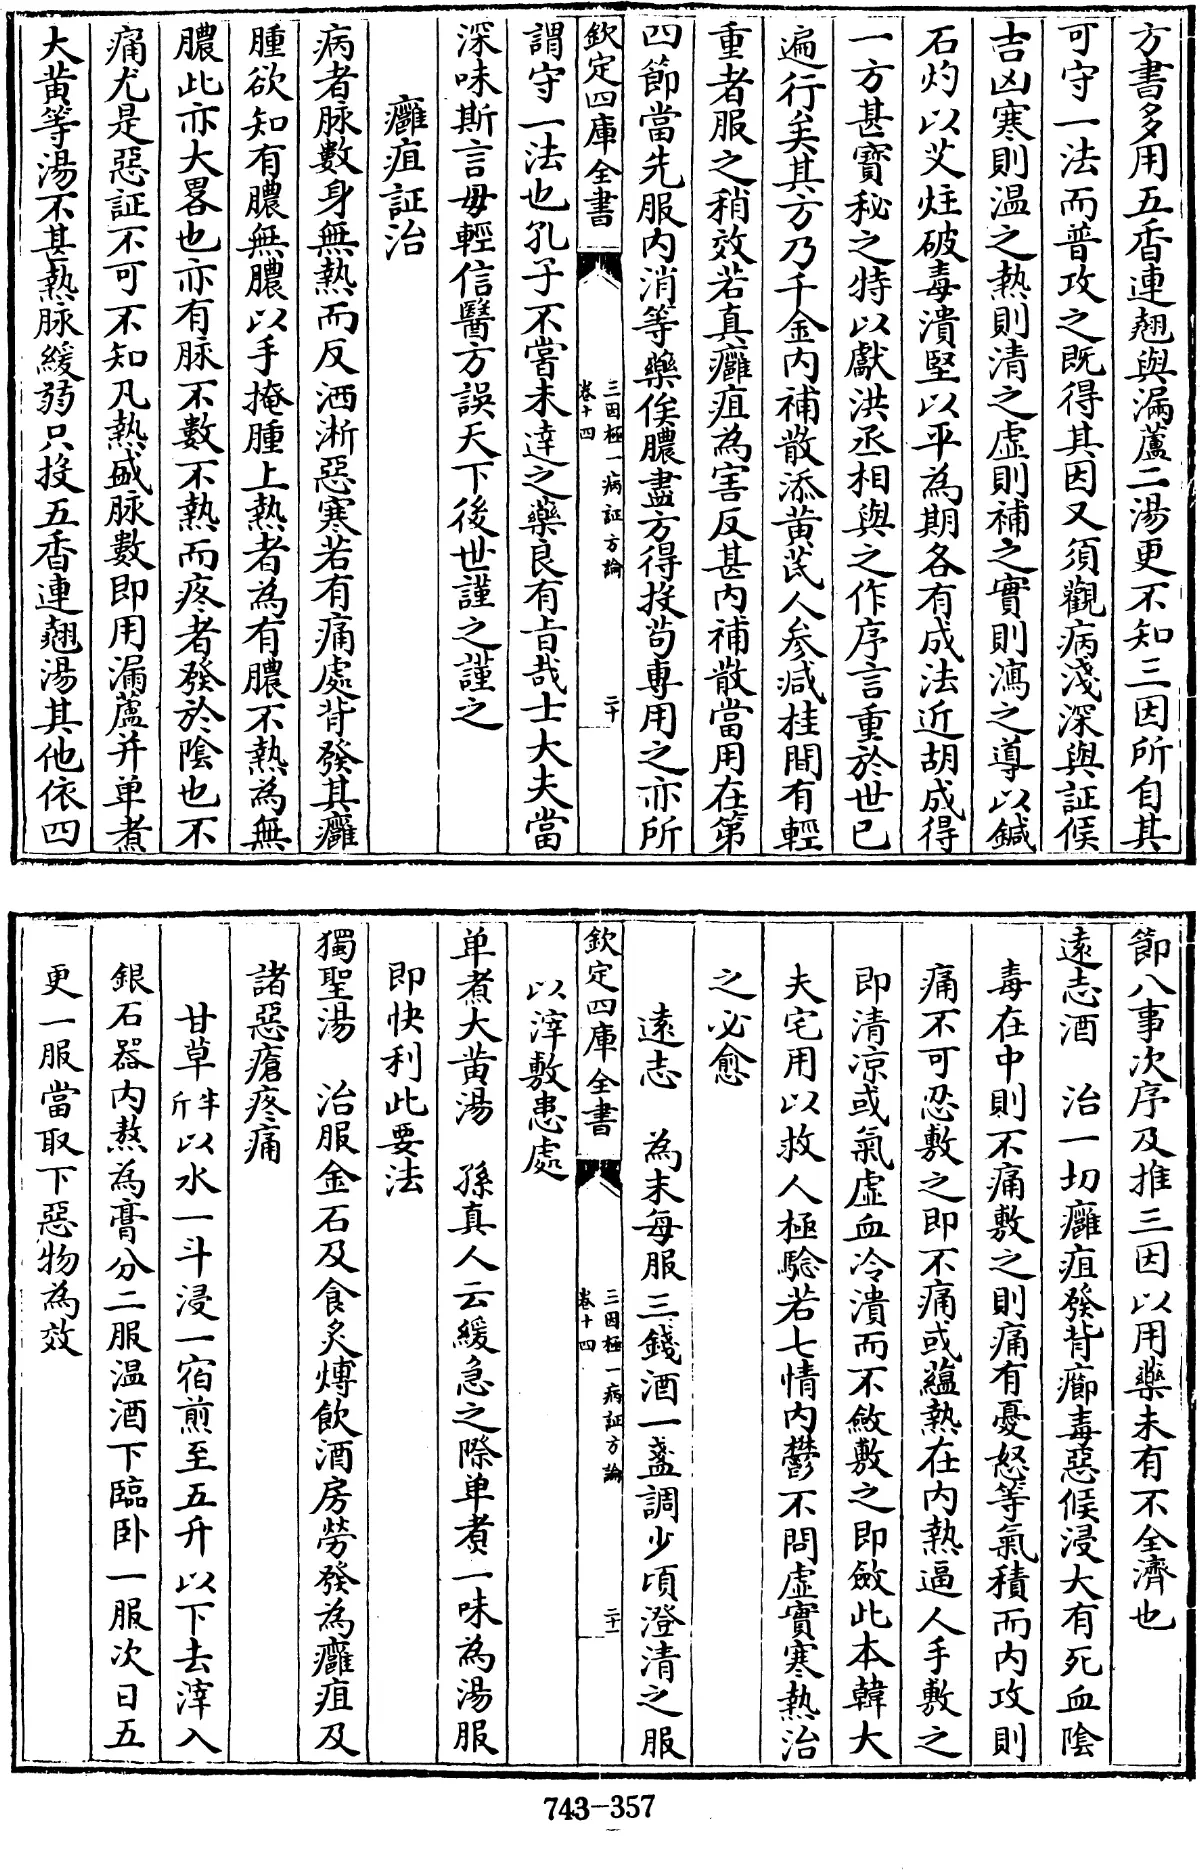 方書多用五香連翹與漏蘆二湯更不知三因所自其
可守一法而普攻之既得其因又須觀病淺深與証候
吉凶寒則温之熱則清之虚則補之實則瀉之導以鍼
石灼以艾炷破毒潰堅以平為期各有成法近胡成得
一方甚寳秘之特以獻洪丞相與之作序言重於世已
遍行矣其方乃千金内補散添黄芪人參减桂間有輕
重者服之稍效若真癰疽為害反甚内補散當用在第
四節當先服内消等藥俟膿盡方得投茍專用之亦所
欽定四庫全書
三因極一病証方論
卷十四
二十
謂守一法也孔子不嘗未逹之藥良有㫖哉士大夫當
深味斯言毋輕信醫方誤天下後世謹之謹之
癰疽証治
病者脉數身無熱而反洒淅惡寒若有痛處背發其癰
腫欲知有膿無膿以手掩腫上熱者為有膿不熱為無
膿此亦大畧也亦有脉不數不熱而疼者發於隂也不
痛尤是惡証不可不知凡熱盛脉數即用漏蘆并单煮
大黄等湯不甚熱脉緩弱只投五香連翹湯其他依四
節八事次序及推三因以用藥未有不全濟也
遠志酒　治一切癰疽發背癤毒惡候浸大有死血隂
毒在中則不痛敷之則痛有憂怒等氣積而内攻則
痛不可忍敷之即不痛或蘊熱在内熱逼人手敷之
即清凉或氣虚血冷潰而不斂敷之即斂此本韓大
夫宅用以救人極驗若七情内鬱不問虚實寒熱治
之必愈
遠志　為末每服三錢酒一盞調少頃澄清之服
欽定四庫全書
三因極一病証方論
卷十四
二十一
以滓敷患處
单煮大黄湯　孫真人云緩急之際单煮一味為湯服
即快利此要法
獨聖湯　治服金石及食炙煿飲酒房勞發為癰疽及
諸惡瘡疼痛
甘草半斤以水一斗浸一宿煎至五升以下去滓入
銀石器内熬為膏分二服温酒下臨卧一服次日五
更一服當取下惡物為效
743—357